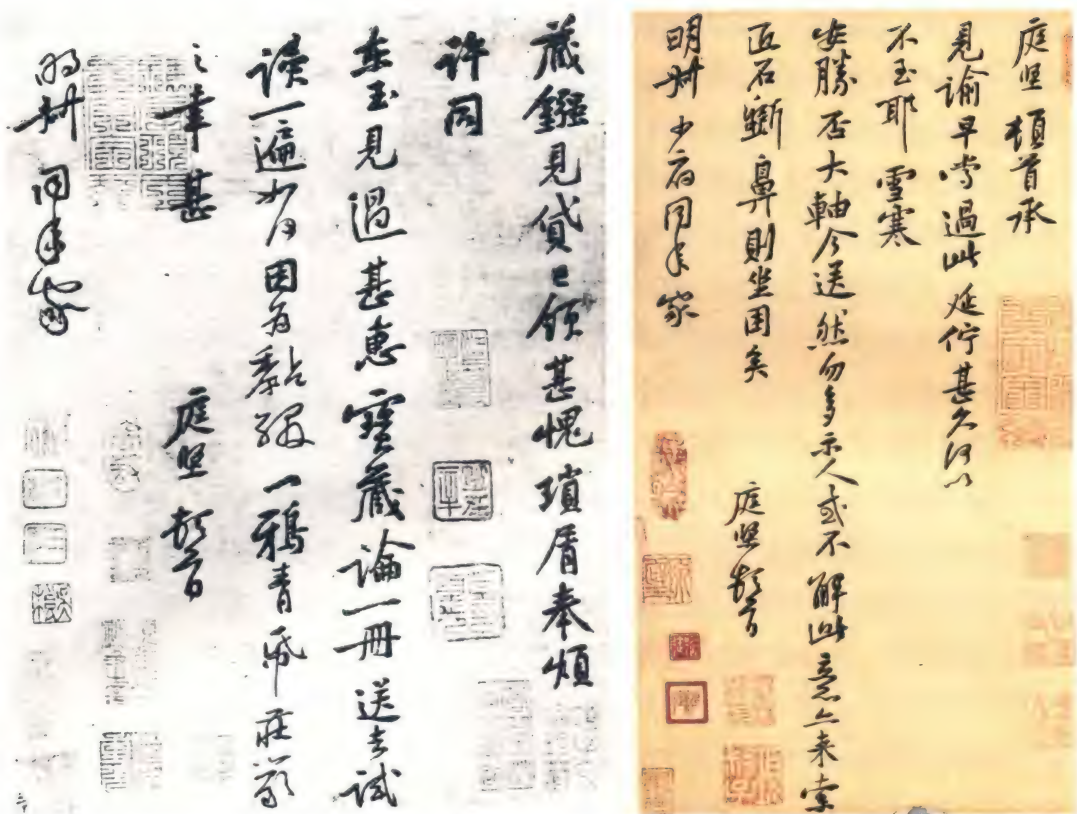 庭堅頓首承
見諭早嘗過此延佇甚久何以
不至耶雪寒
安勝否大軸今送然勿多示人或不解此意亦來索
匠石斵鼻則坐困矣
庭堅頓首
明叔少府同年家
藏鏹見貸已領甚愧瑣屑奉煩
許同
東玉見過甚惠寶藏論一冊送去試
讀一遍因為黏綴一鴉青紙莊嚴
之幸甚
庭堅頓首
明叔同年家